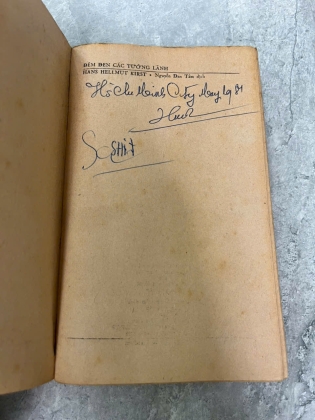 ĐÊM ĐEN CÁC TƯỚNG LÃNH
HANS HELLMUT KIRST • Nguyễn Đan Tâm dịch
Hồ Chí Minh City May 19 81